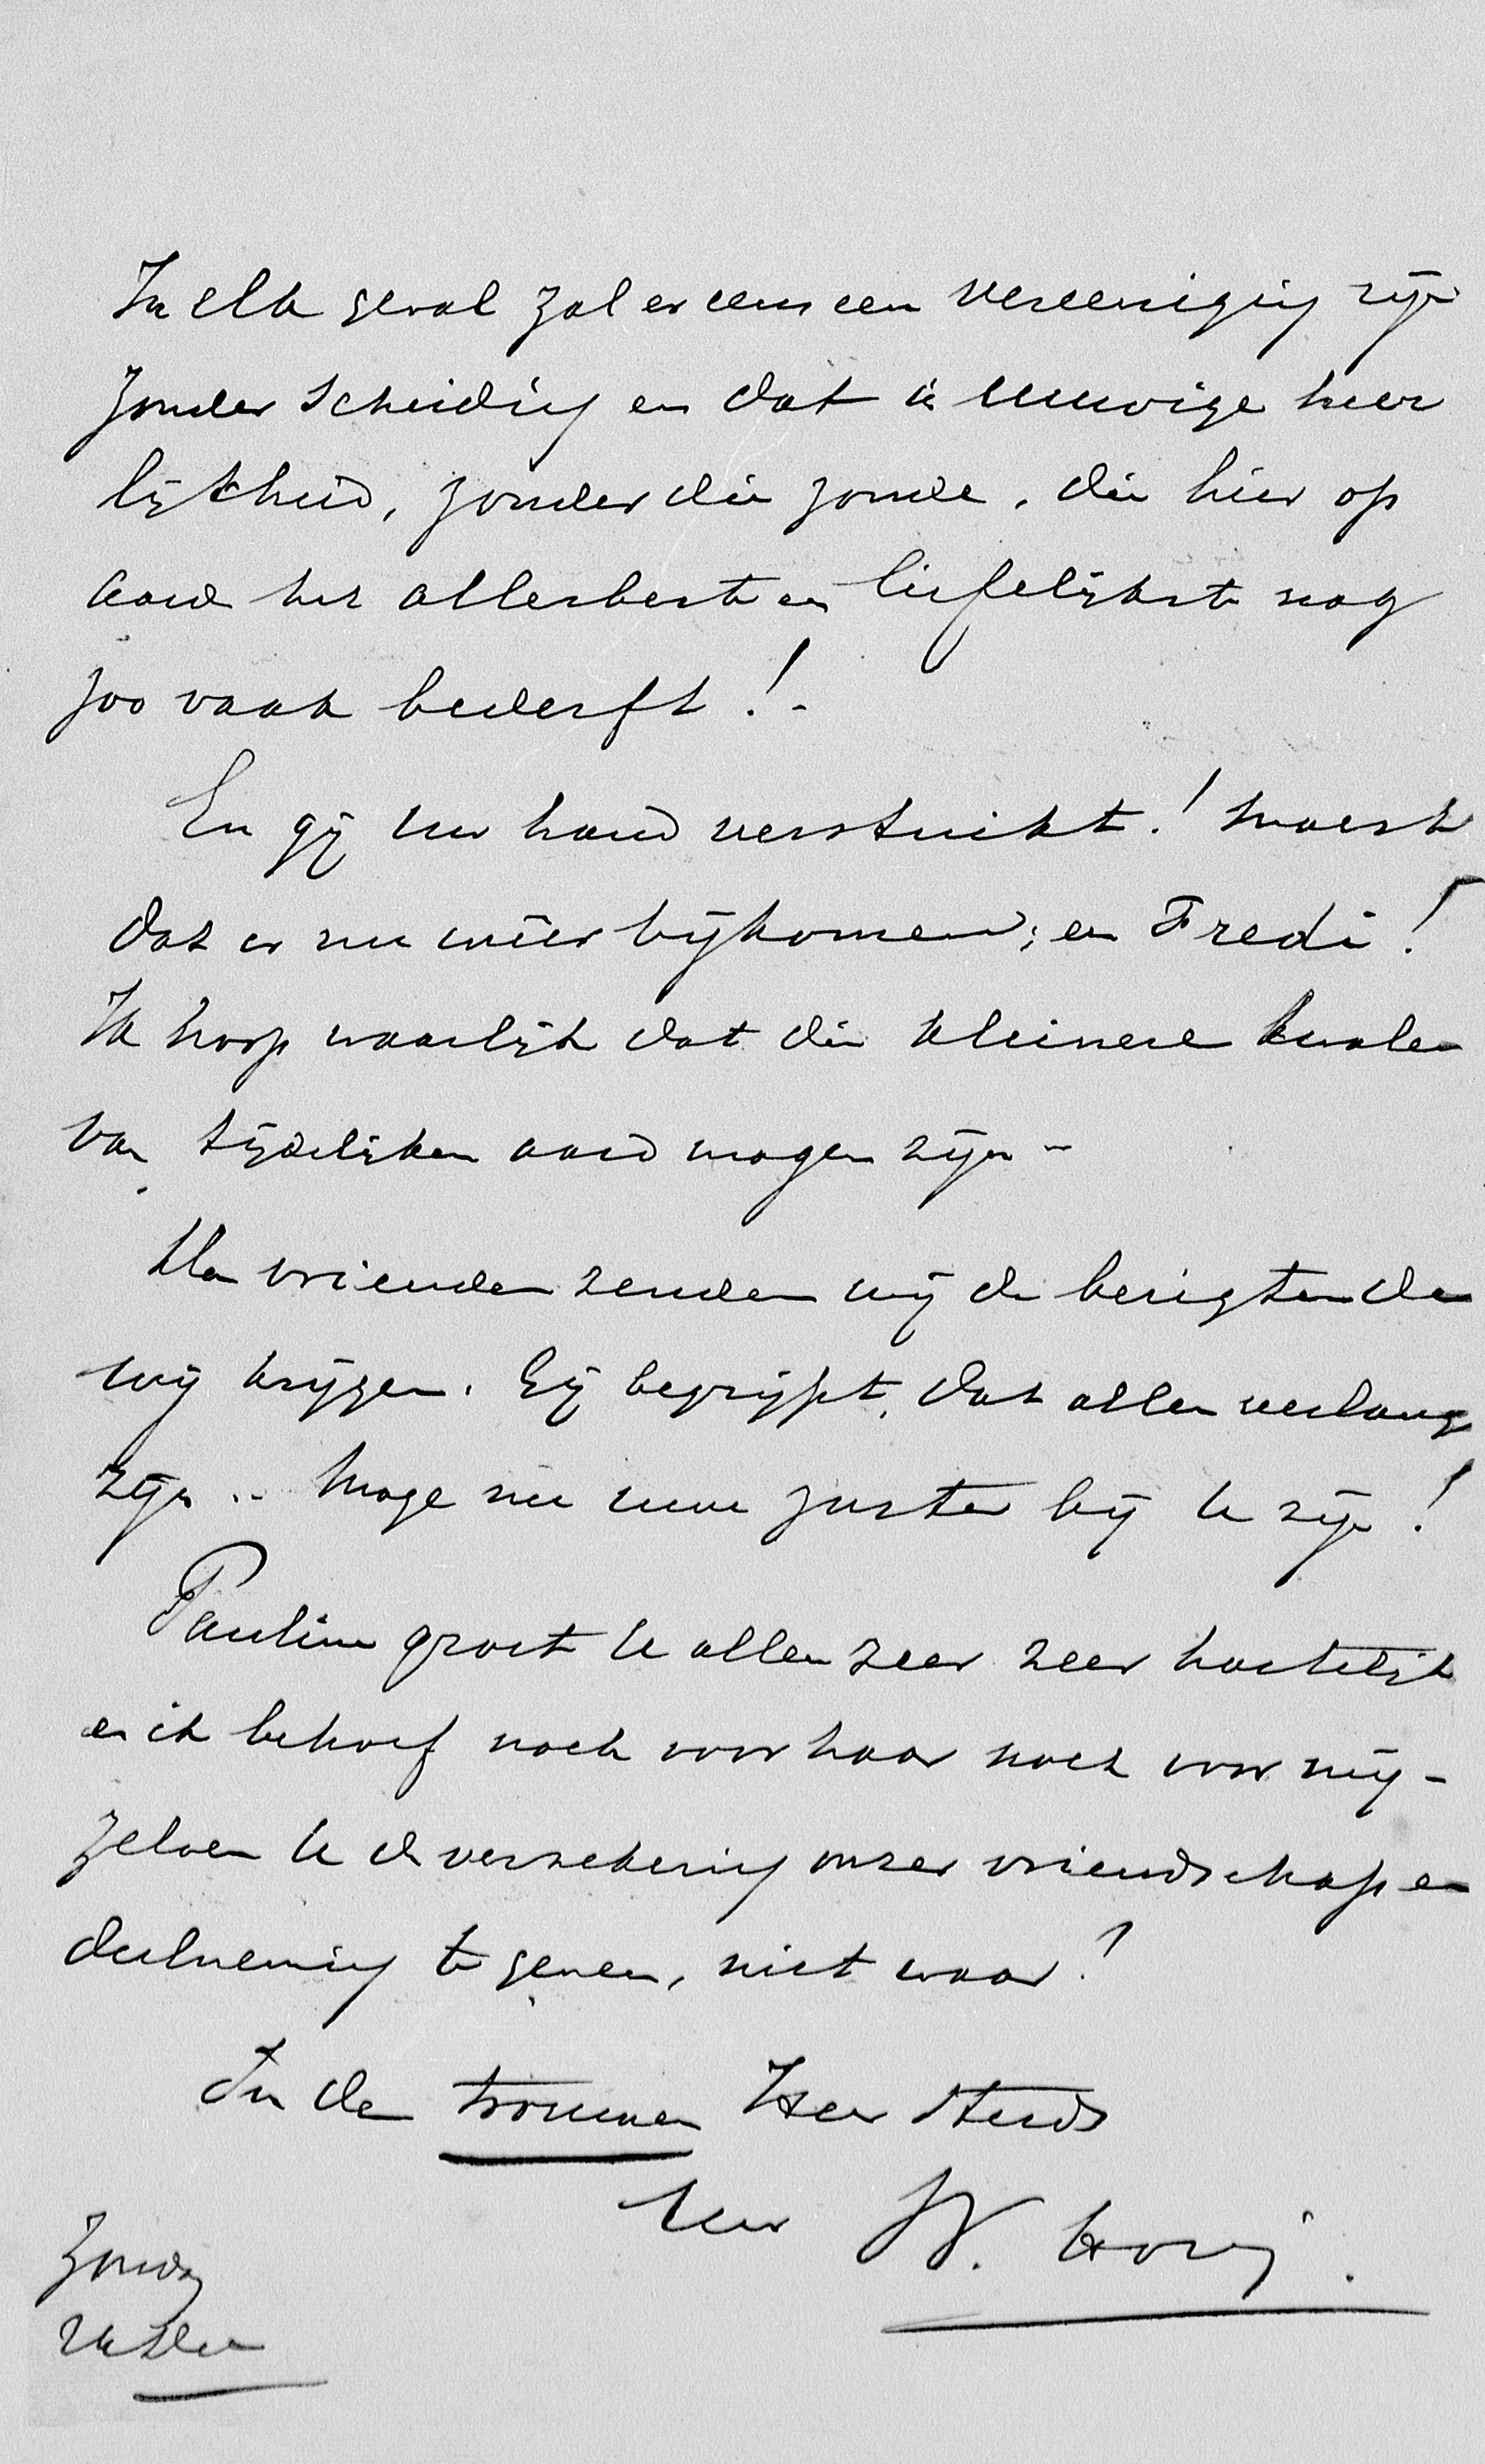 In elk geval zal er eens een vereeniging zijn
zonder scheiding en dat is eeuwige heer
lijkheid, zonder die zonde, die hier op
aard het allerbeste en liefelijkste nog
zoo vaak bederft!
En gij uw hand verstuikt! Moest
dat er nu weer bijkomen; en Fredi!
Ik hoop waarlijk dat die kleinere kwalen
van tijdelijken aard mogen zijn -
Uw vrienden zenden wij de berigten die
wij krijgen. Gij begrijpt, dat allen verlang
zijn .. Moge nu uwe zuster bij U zijn!
Pauline groet U allen zeer zeer hartelijk
en ik behoef noch voor haar noch voor mij-
zelven U de verzekering onzer vriendschap en
deelneming te geven, niet waar?
In den trouwen Heer steeds
Uw W. Hovy.
Zondag